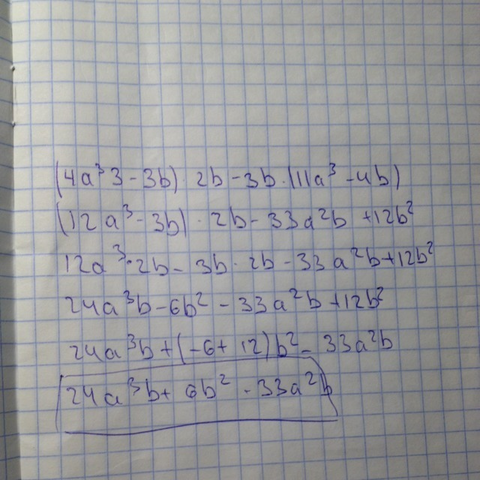 (4a³3-3b) 2b-3b·(11a³-4b)
(12a³-3b)·2b-33a²b+12b²
12a³·2b-3b·2b-33a²b+12b²
24a³b-6b²-33a²b+12b²
24a³b+(-6+12)b²-33a²b
24a³b+6b²-33a²b